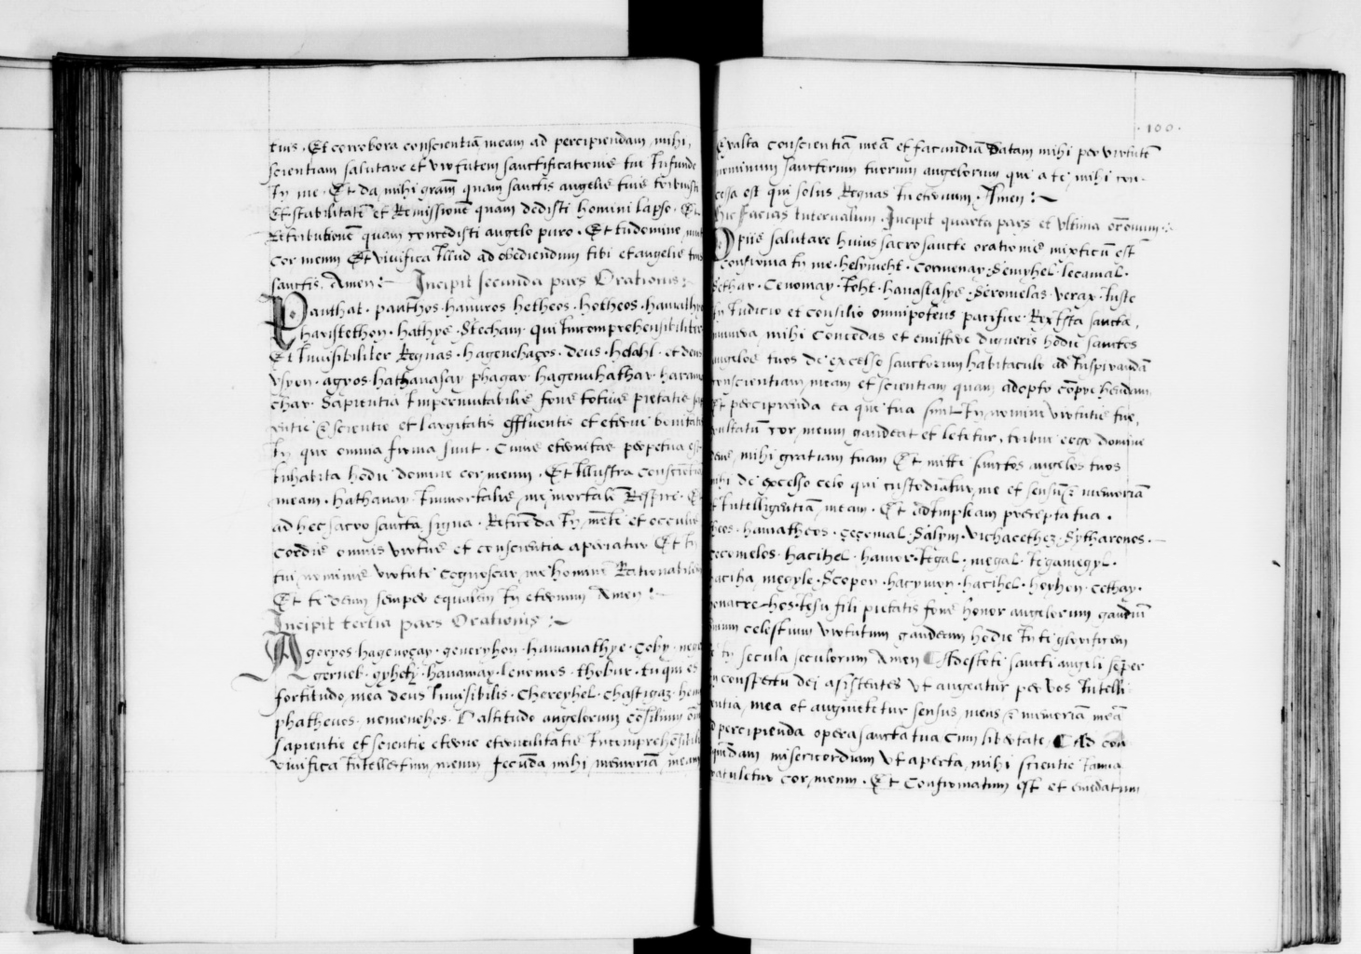 tuis. Et corrobora conscientiā meam ad percipiendam mihi,
scientiam salutare et virtutem sanctificationis tui Infunde
In me. Et da mihi grām quam sanctis angelis tuis
Et stabilitatē et Remissionē quam dedisti homini lapso. Et
Retributionē quam concedisti angelo puro. Et tu domine
cor meum Et vivifica Illud ad obediendum tibi et angelis tuis
sanctis. Amen:~ Incipit secunda pars Orationis:
Panthat. panthos. hamros hetheos. hotheos. hamathye
haristethon. hathye. Stecham. qui Incomprehensibiliter
Et Invisibiliter Regnas. hagenehagos. deus. helahl. et deus
vsyon. agyos. hathanasay phagar hagenuhathar. harame
char. Sapientia Impermutabilis fons totius pietatis
entie & scientie et largitatis Effluentis et eterne bonitatis
In quo omnia firma sunt. Cuius eternitas perpetua est
Inhabita hodie domine cor meum. Et Illustra conscientiā
meam. hathanay Immortalis, me mortalē Respice. Et
ad hec sacro sancta signa. Retinēda In mēte et occulis
cordis omnis virtus et conscientia aperiatur Et In
tui nominis virtute cognoscar, me hominē Rationabilem
Et te deum semper equalem In eternum Amen:~
Incipit tertia pars Orationis:~
Ageryos. hagenogay. generyhon. hamanathye. Coby.
gernel. gyhety. hanaway. lenemos. thobur. tu qui es
fortitudo mea deus Invisibilis. Chereyhel. chastigaz.
phatheuos. nemenehos. O altitudo angelorum cōsilium
sapientie et scientie eterne eternilitatis Incomprehēsibilis
vivifica Intellectum meum fecunda mihi, memoriam meam
·100·
Exalta conscientiā meā et facundiā datam mihi per virtutē
nominum sanctorum tuorum angelorum que a te mihi con-
cessa est qui solus Regnas In eternum. Amen:~
Hic facias Intervalum. Incipit quarta pars et vltima orōnum.
Opiis salutare huius sacrosancte orationis mixticū est
confirma In me. helymeht. Cormenay. Semyhel. lecamal.
Sethar. Cenomay. Toht. hanastasye. Geromelas. verax. Iuste
In Iudicio et consilio omnipotens pacifice. Rex Ista sancta,
munera mihi concedas et emittere digneris hodie sanctos
angelos tuos de excelso sanctorum habitaculo ad Inspirandā
conscientiam meam et scientiam quam adopto cōprehendam
Et percipienda ea que tua sunt In nomine virtutis tue,
exultatū cor meum gaudeat et letetur, tribue ergo domine
deus, mihi gratiam tuam Et mitte sanctos angelos tuos
mihi de excelso celo qui custodiatur me et sensū & memoriā
et Intelligentiā meam. Et adImpleam precepta tua.
heos. hamatheos. gegomal. Salym. vichacethez. Sytharenos.
gecomelos. hacihel. hamer. Tegal. megal. Tegamegyl.
haciha megyle. Scopor. hacymen. hacihel. horhon. cethay.
henacre-hos. Iesu fili pietatis fons honor angelorum gaudiū
omnium celestium virtutum gaudeam hodie In te glorificem
te In secula seculorum Amen Adestote sancti angeli semper
In conspectu dei asistentes vt augeatur per vos Intelli
gentia mea et augmētetur sensus, mens & memoriam meā
ad percipienda opera sancta tua cum libertate. Ad con
quēdam misericordiam vt aperta, mihi scientie Ianua
Iaculetur cor meum. Et Confirmatum est et emēdatum